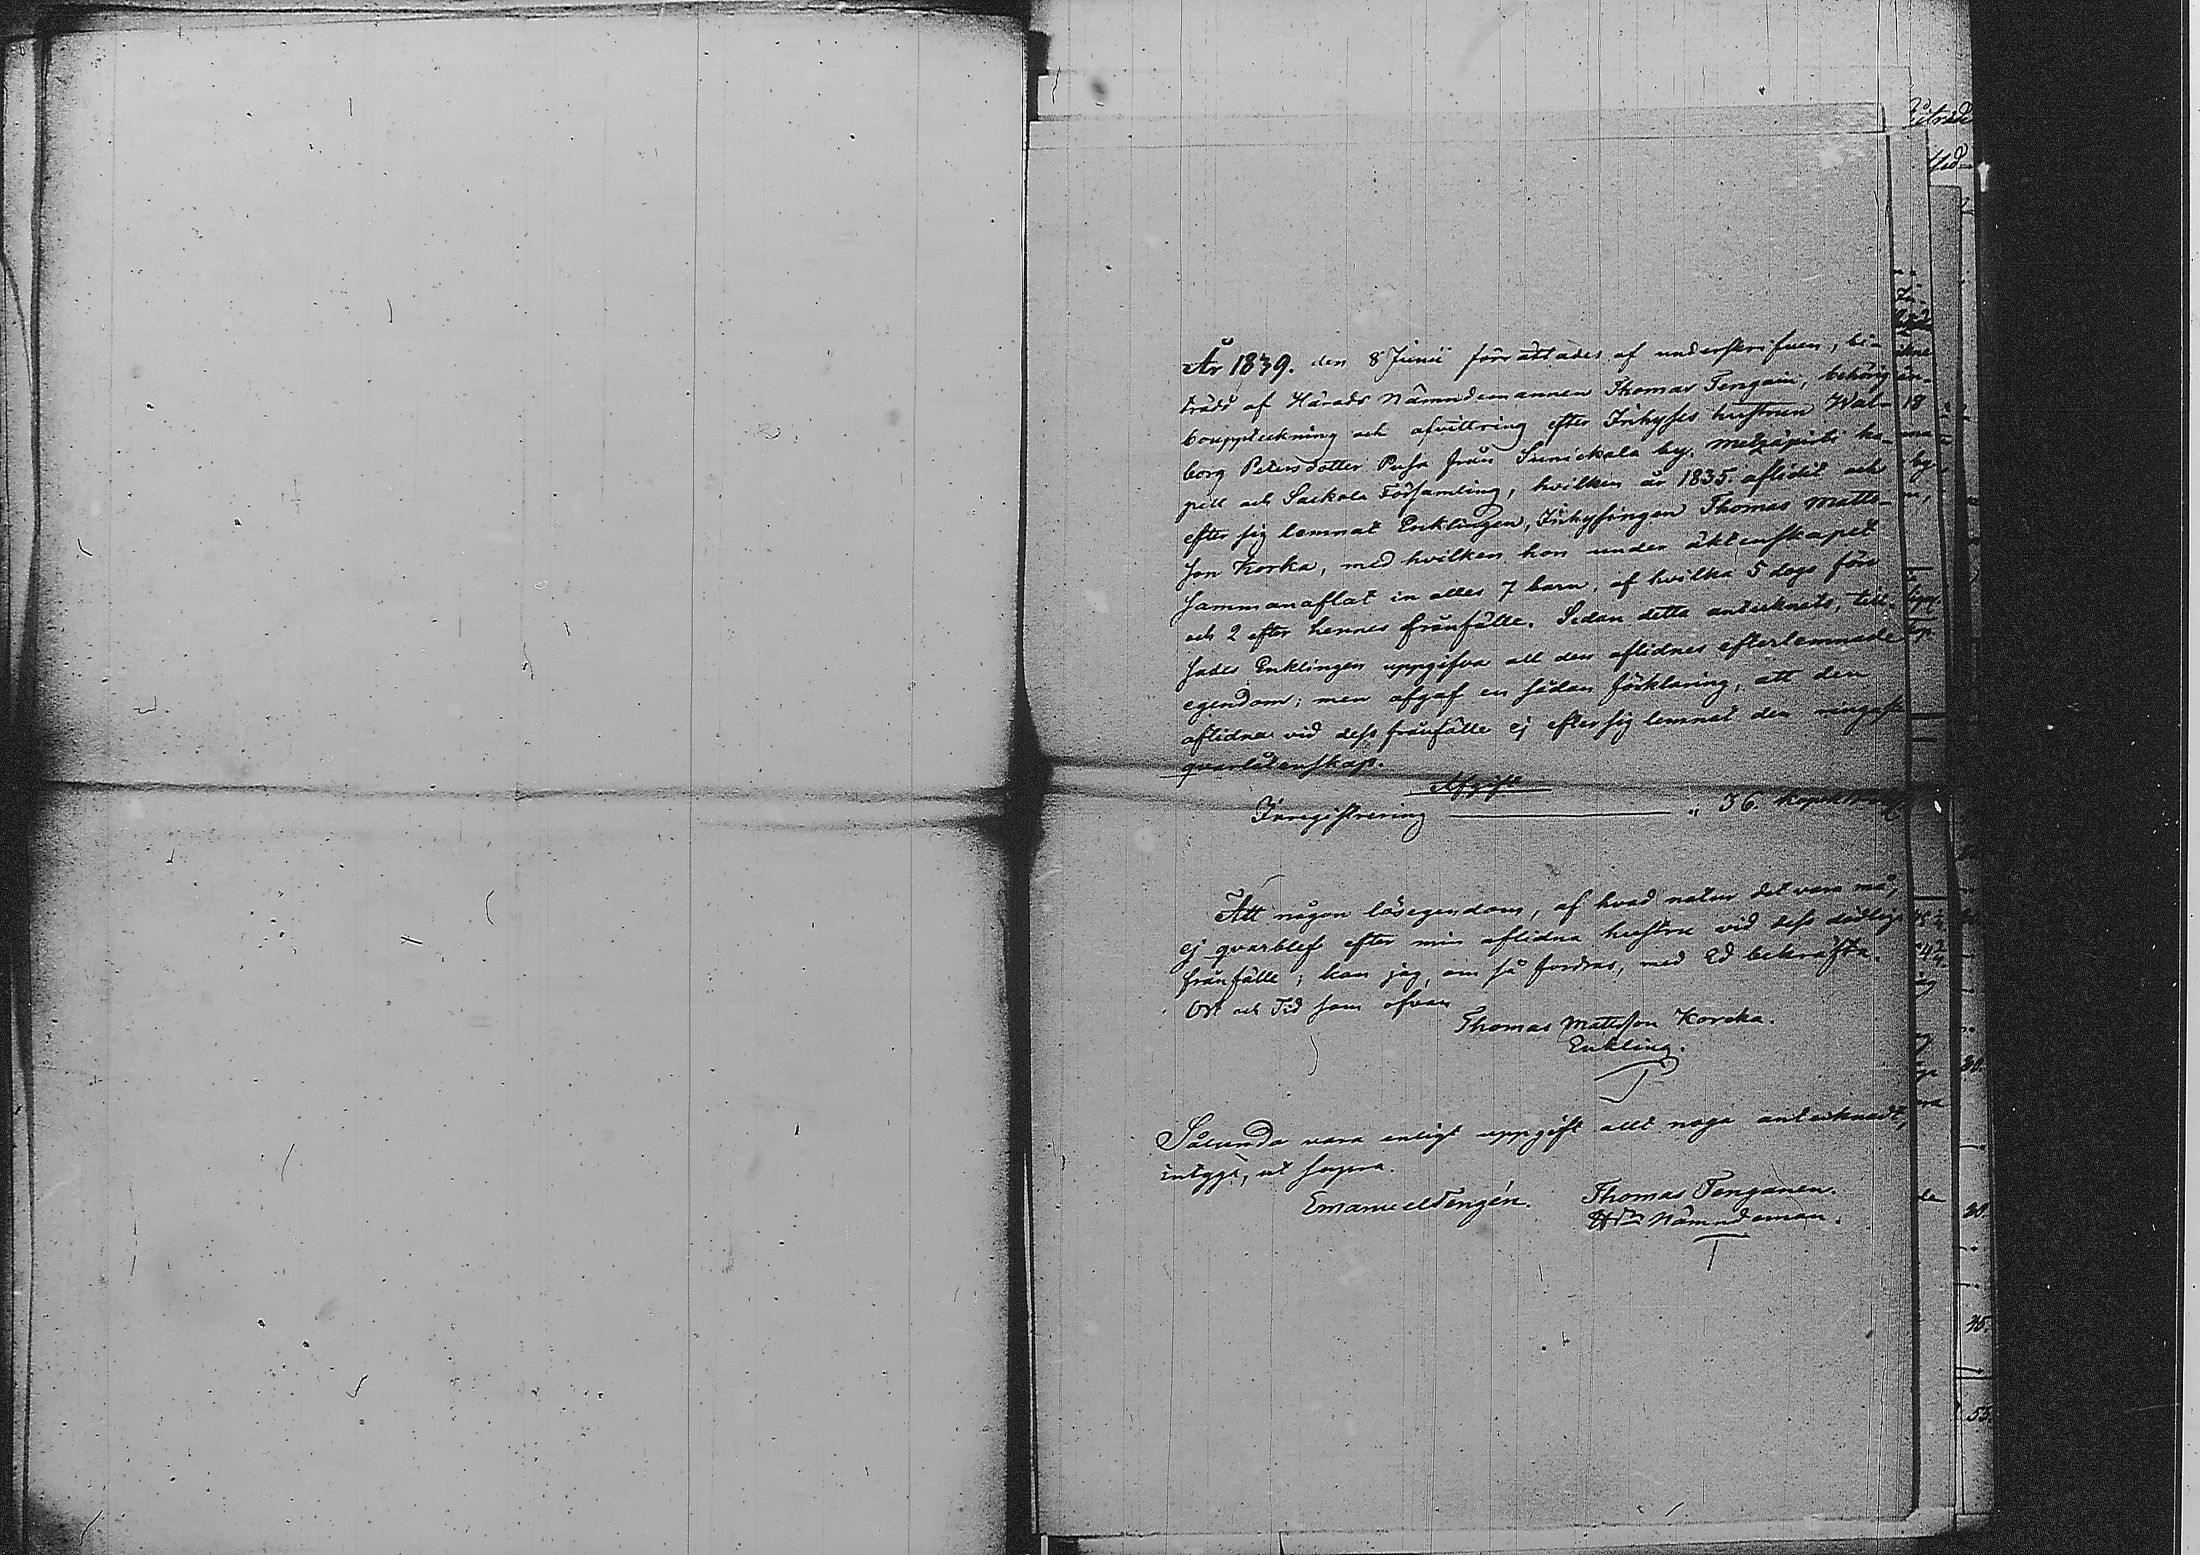 År 1839. den 8 Junii förrättades af underskrifven, bi-
trädd af Härads Nämndemannen Thomas Tengain, behörig
bouppteckning och afvittring efter Inhyses hustrun Wal-
borg Petersdotter Pusa från Sunickala by, Metzäpirti ka-
pell och Sackola Församling, hvilken år 1835. aflidit och
efter sig lemnat Enklingen, Inhysingen Thomas Matts-
son Korka, med hvilken hon under äktenskapet
sammanaflat in alles 7 barn, af hvilka 5 dogo före
och 2 efter hennes frånfälle. Sedan detta antecknats, till-
sades Enklingen uppgifva all den aflidnes efterlemnade
egendom; men afgaf en sådan förklaring, att den
aflidna vid dess frånfälle ej efter sig lemnat den ringaste
qvarlåtenskap.
Afgift
Inregistrering " 36. kopek
Att någon lösegendom, af hvad natur det vara må,
ej qvarblef efter min aflidna hustru vid dess dödliga
frånfälle; kan jag, om så fordras, med Ed bekräfta.
Ort och Tid som ofvan
Thomas Mattsson Korcka.
Enkling.
Sålunda vara enligt uppgift allt noga antecknadt,
intyga, ut supra.
Emanuel Tengén. Thomas Tenganen.
Hds Nämndeman.